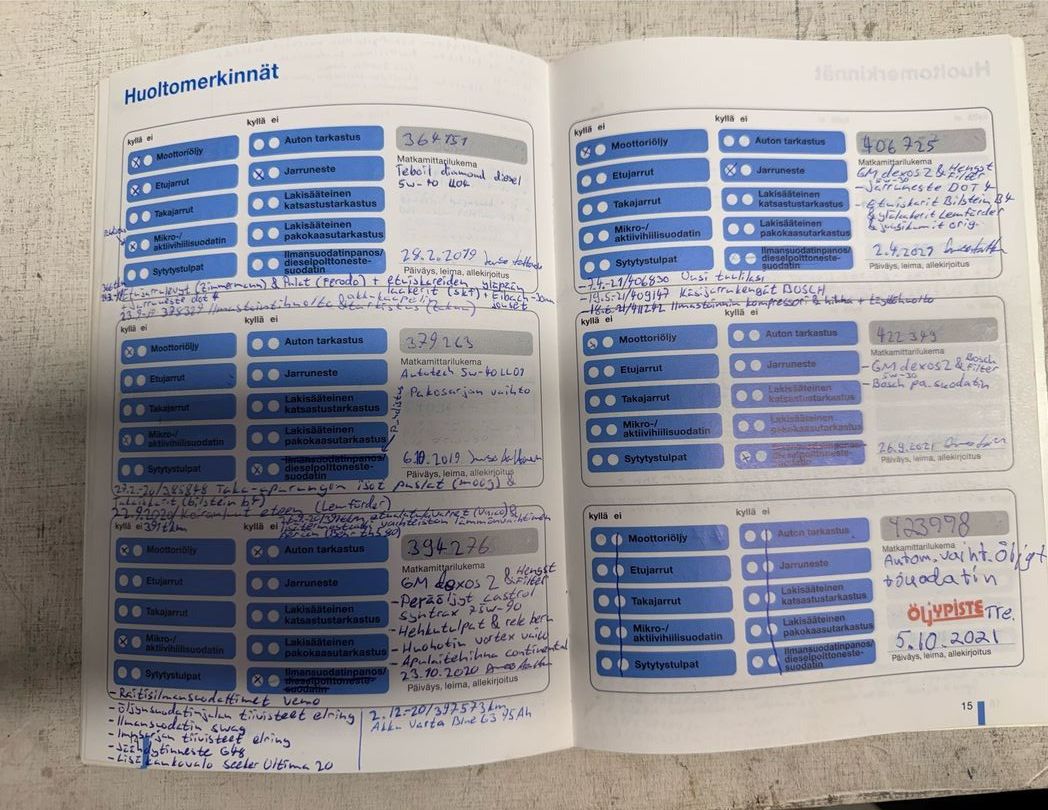 Huoltomerkinnät
kyllä ei
kyllä ei
Moottoriöljy
Auton tarkastus
364751
Matkamittarilukema
Etujarrut
Jarruneste
Teboil diamond diesel
5w-40
Takajarrut
Lakisääteinen
katsastustarkastus
Mikro-/
aktiivihiilisuodatin
Lakisääteinen
pakokaasutarkastus
Sytytystulpat
Ilmansuodatinpanos/
dieselpolttoneste-
suodatin
28.2.2019
Päiväys, leima, allekirjoitus
Etujarrulevyt (Zimmermann) & Palat (Ferodo) + etuiskareiden yläpään
laakerit (SKF) + Eibach
Jarruneste dot 4
kyllä ei
Moottoriöljy
Auton tarkastus
379263
Matkamittarilukema
Etujarrut
Jarruneste
Autotech 5w-40
Takajarrut
Lakisääteinen
katsastustarkastus
Pakosarjan vaihto
Mikro-/
aktiivihiilisuodatin
Lakisääteinen
pakokaasutarkastus
Sytytystulpat
Ilmansuodatinpanos/
dieselpolttoneste-
suodatin
6.10.2019
Päiväys, leima, allekirjoitus
Taka-apurungon isot puslat (moog) &
Takaiskarit (bilstein b4)
22.9.2020/ eteen (Lemförder)
kyllä ei
kyllä ei
Moottoriöljy
Auton tarkastus
394276
Matkamittarilukema
Etujarrut
Jarruneste
GM dexos 2 & Hengst
Filter
Takajarrut
Lakisääteinen
katsastustarkastus
- Peräöljyt castrol
syntrax 75w-90
Mikro-/
aktiivihiilisuodatin
Lakisääteinen
pakokaasutarkastus
- Hehkutulpat & rele beru
- Huohotin vortex
- Apulaitehihna continental
Sytytystulpat
Ilmansuodatinpanos/
dieselpolttoneste-
suodatin
23.10.2020
Päiväys, leima, allekirjoitus
- Raitisilmansuodattimet vemo
- öljynsuodatinjalan tiivisteet elring
- Ilmansuodatin swag
- Impsarjan tiivisteet elring
- Jäähdytinneste G48
- Lisäkaukovalo Seeker Ultima 20
2.12.-20/397573km
Akku Varta Blue G3 95Ah
kyllä ei
kyllä ei
Moottoriöljy
Auton tarkastus
406725
Matkamittarilukema
Etujarrut
Jarruneste
GM dexos 2 & Hengst
5w-30 Filter
- Jarruneste DOT 4
Takajarrut
Lakisääteinen
katsastustarkastus
- Etuiskarit Bilstein B4
& ylälaakerit Lemförder
Mikro-/
aktiivihiilisuodatin
Lakisääteinen
pakokaasutarkastus
Sytytystulpat
Ilmansuodatinpanos/
dieselpolttoneste-
suodatin
2.4.2021
Päiväys, leima, allekirjoitus
-7.4-21/406830 Uusi tuulilasi
-19.5-21/409147 Käsijarrukengät BOSCH
-18.6-21/411242 Ilmastoinnin kompressori & hihna + täyttöhuolto
kyllä ei
kyllä ei
Moottoriöljy
Auton tarkastus
422349
Matkamittarilukema
Etujarrut
Jarruneste
- GM dexos 2 & Bosch
5w-30 Filter
- Bosch pa.suodatin
Takajarrut
Lakisääteinen
katsastustarkastus
Mikro-/
aktiivihiilisuodatin
Lakisääteinen
pakokaasutarkastus
Sytytystulpat
26.9.2021
Päiväys, leima, allekirjoitus
kyllä ei
kyllä ei
Moottoriöljy
Auton tarkastus
423998
Matkamittarilukema
Etujarrut
Jarruneste
Autom.vaiht.Öljyt
+suodatin
Takajarrut
Lakisääteinen
katsastustarkastus
Mikro-/
aktiivihiilisuodatin
Lakisääteinen
pakokaasutarkastus
ÖLJYPISTE Tre.
Sytytystulpat
Ilmansuodatinpanos/
dieselpolttoneste-
suodatin
5.10.2021
Päiväys, leima, allekirjoitus
15